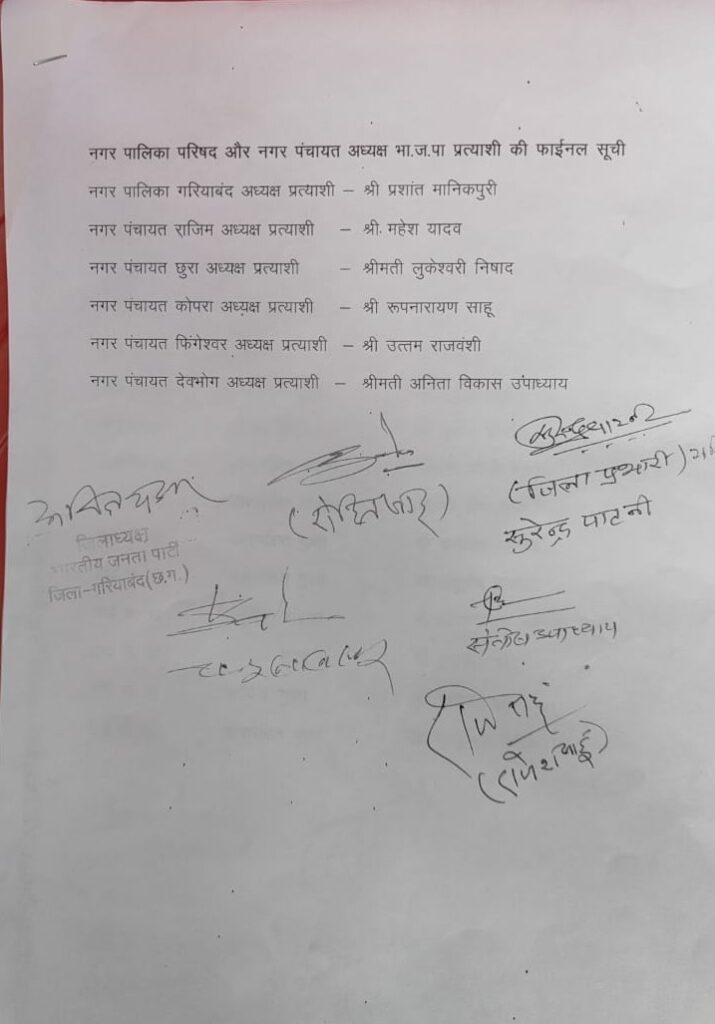 नगर पालिका परिषद और नगर पंचायत अध्यक्ष भा.ज.पा प्रत्याशी की फाईनल सूची
नगर पालिका गरियाबंद अध्यक्ष प्रत्याशी – श्री प्रशांत मानिकपुरी
नगर पंचायत राजिम अध्यक्ष प्रत्याशी – श्री महेश यादव
नगर पंचायत छुरा अध्यक्ष प्रत्याशी – श्रीमती लुकेश्वरी निषाद
नगर पंचायत कोपरा अध्यक्ष प्रत्याशी – श्री रूपनारायण साहू
नगर पंचायत फिंगेश्वर अध्यक्ष प्रत्याशी – श्री उत्तम राजवंशी
नगर पंचायत देवभोग अध्यक्ष प्रत्याशी – श्रीमती अनिता विकास उपाध्याय
(जिला प्रभारी)
सुरेन्द्र पाटनी
जिलाध्यक्ष
भारतीय जनता पार्टी
जिला-गरियाबंद(छ.ग.)
उपाध्याय